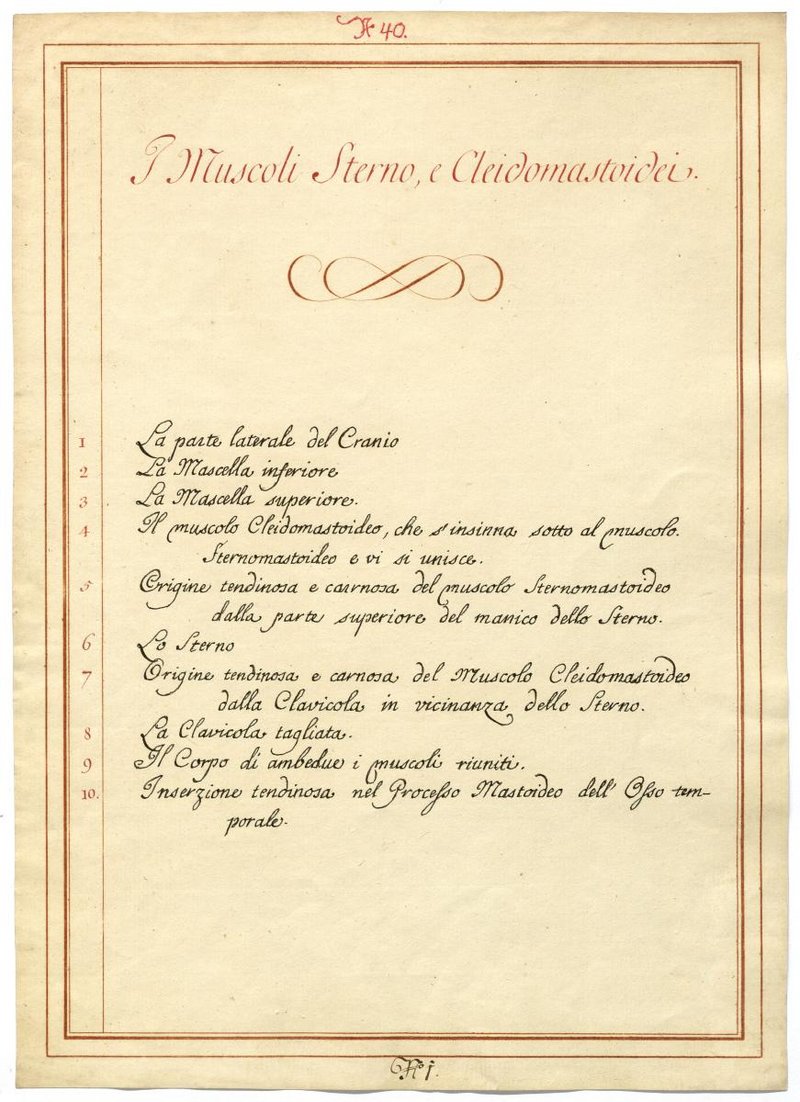 N 40.
I Muscoli Sterno, e Cleidomastoidei.
1 La parte laterale del Cranio
2 La Mascella inferiore
3 La Mascella superiore.
4 Il muscolo Cleidomastoideo, che s'insinua sotto al muscolo.
Sternomastoideo e vi si unisce.
5 Origine tendinosa e carnosa del muscolo Sternomastoideo
dalla parte superiore del manico dello Sterno.
6 Lo Sterno
7 Origine tendinosa e carnosa del Muscolo Cleidomastoideo
dalla Clavicola in vicinanza dello Sterno.
8 La Clavicola tagliata.
9 Il Corpo di ambedue i muscoli riuniti.
10. Inserzione tendinosa nel Processo Mastoideo dell' Osso tem-
porale.
No 1.